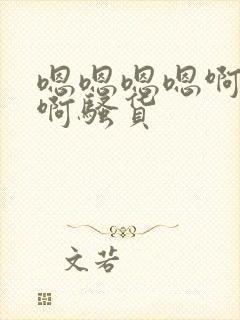 嗯嗯嗯嗯啊
啊骚货
文若